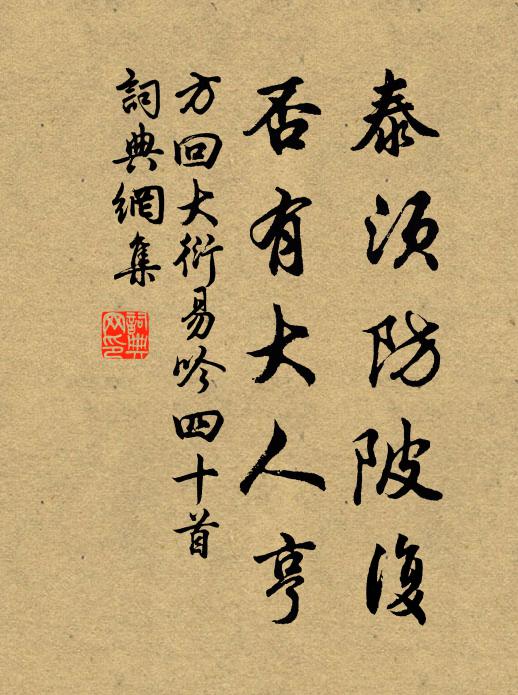 泰須防陂復
否有大人亨
方回大衍易吟四十首
詞典網集
詞典網印